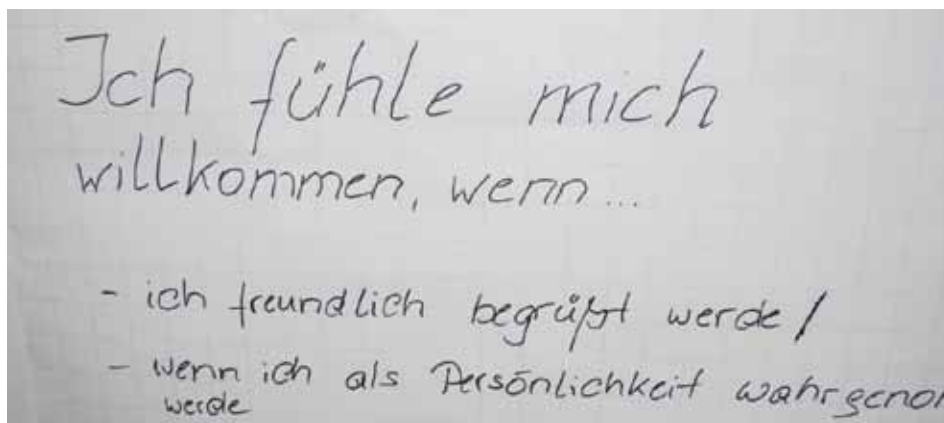 Ich fühle mich
willkommen, wenn...
- ich freundlich begrüßt werde /
- wenn ich als Persönlichkeit wahrgeno
werde